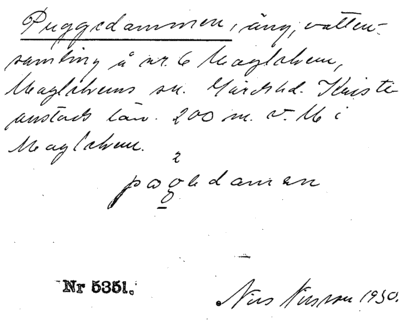 Puggedammen, äng, vatten-
samling å nr. 6 Maglehem,
Maglehems sn. Gärds hd. Kristi-
anstads län. 200 m. v. M i
Maglehem.
2
pogedamen
Nr 5351.
Nils 1930.